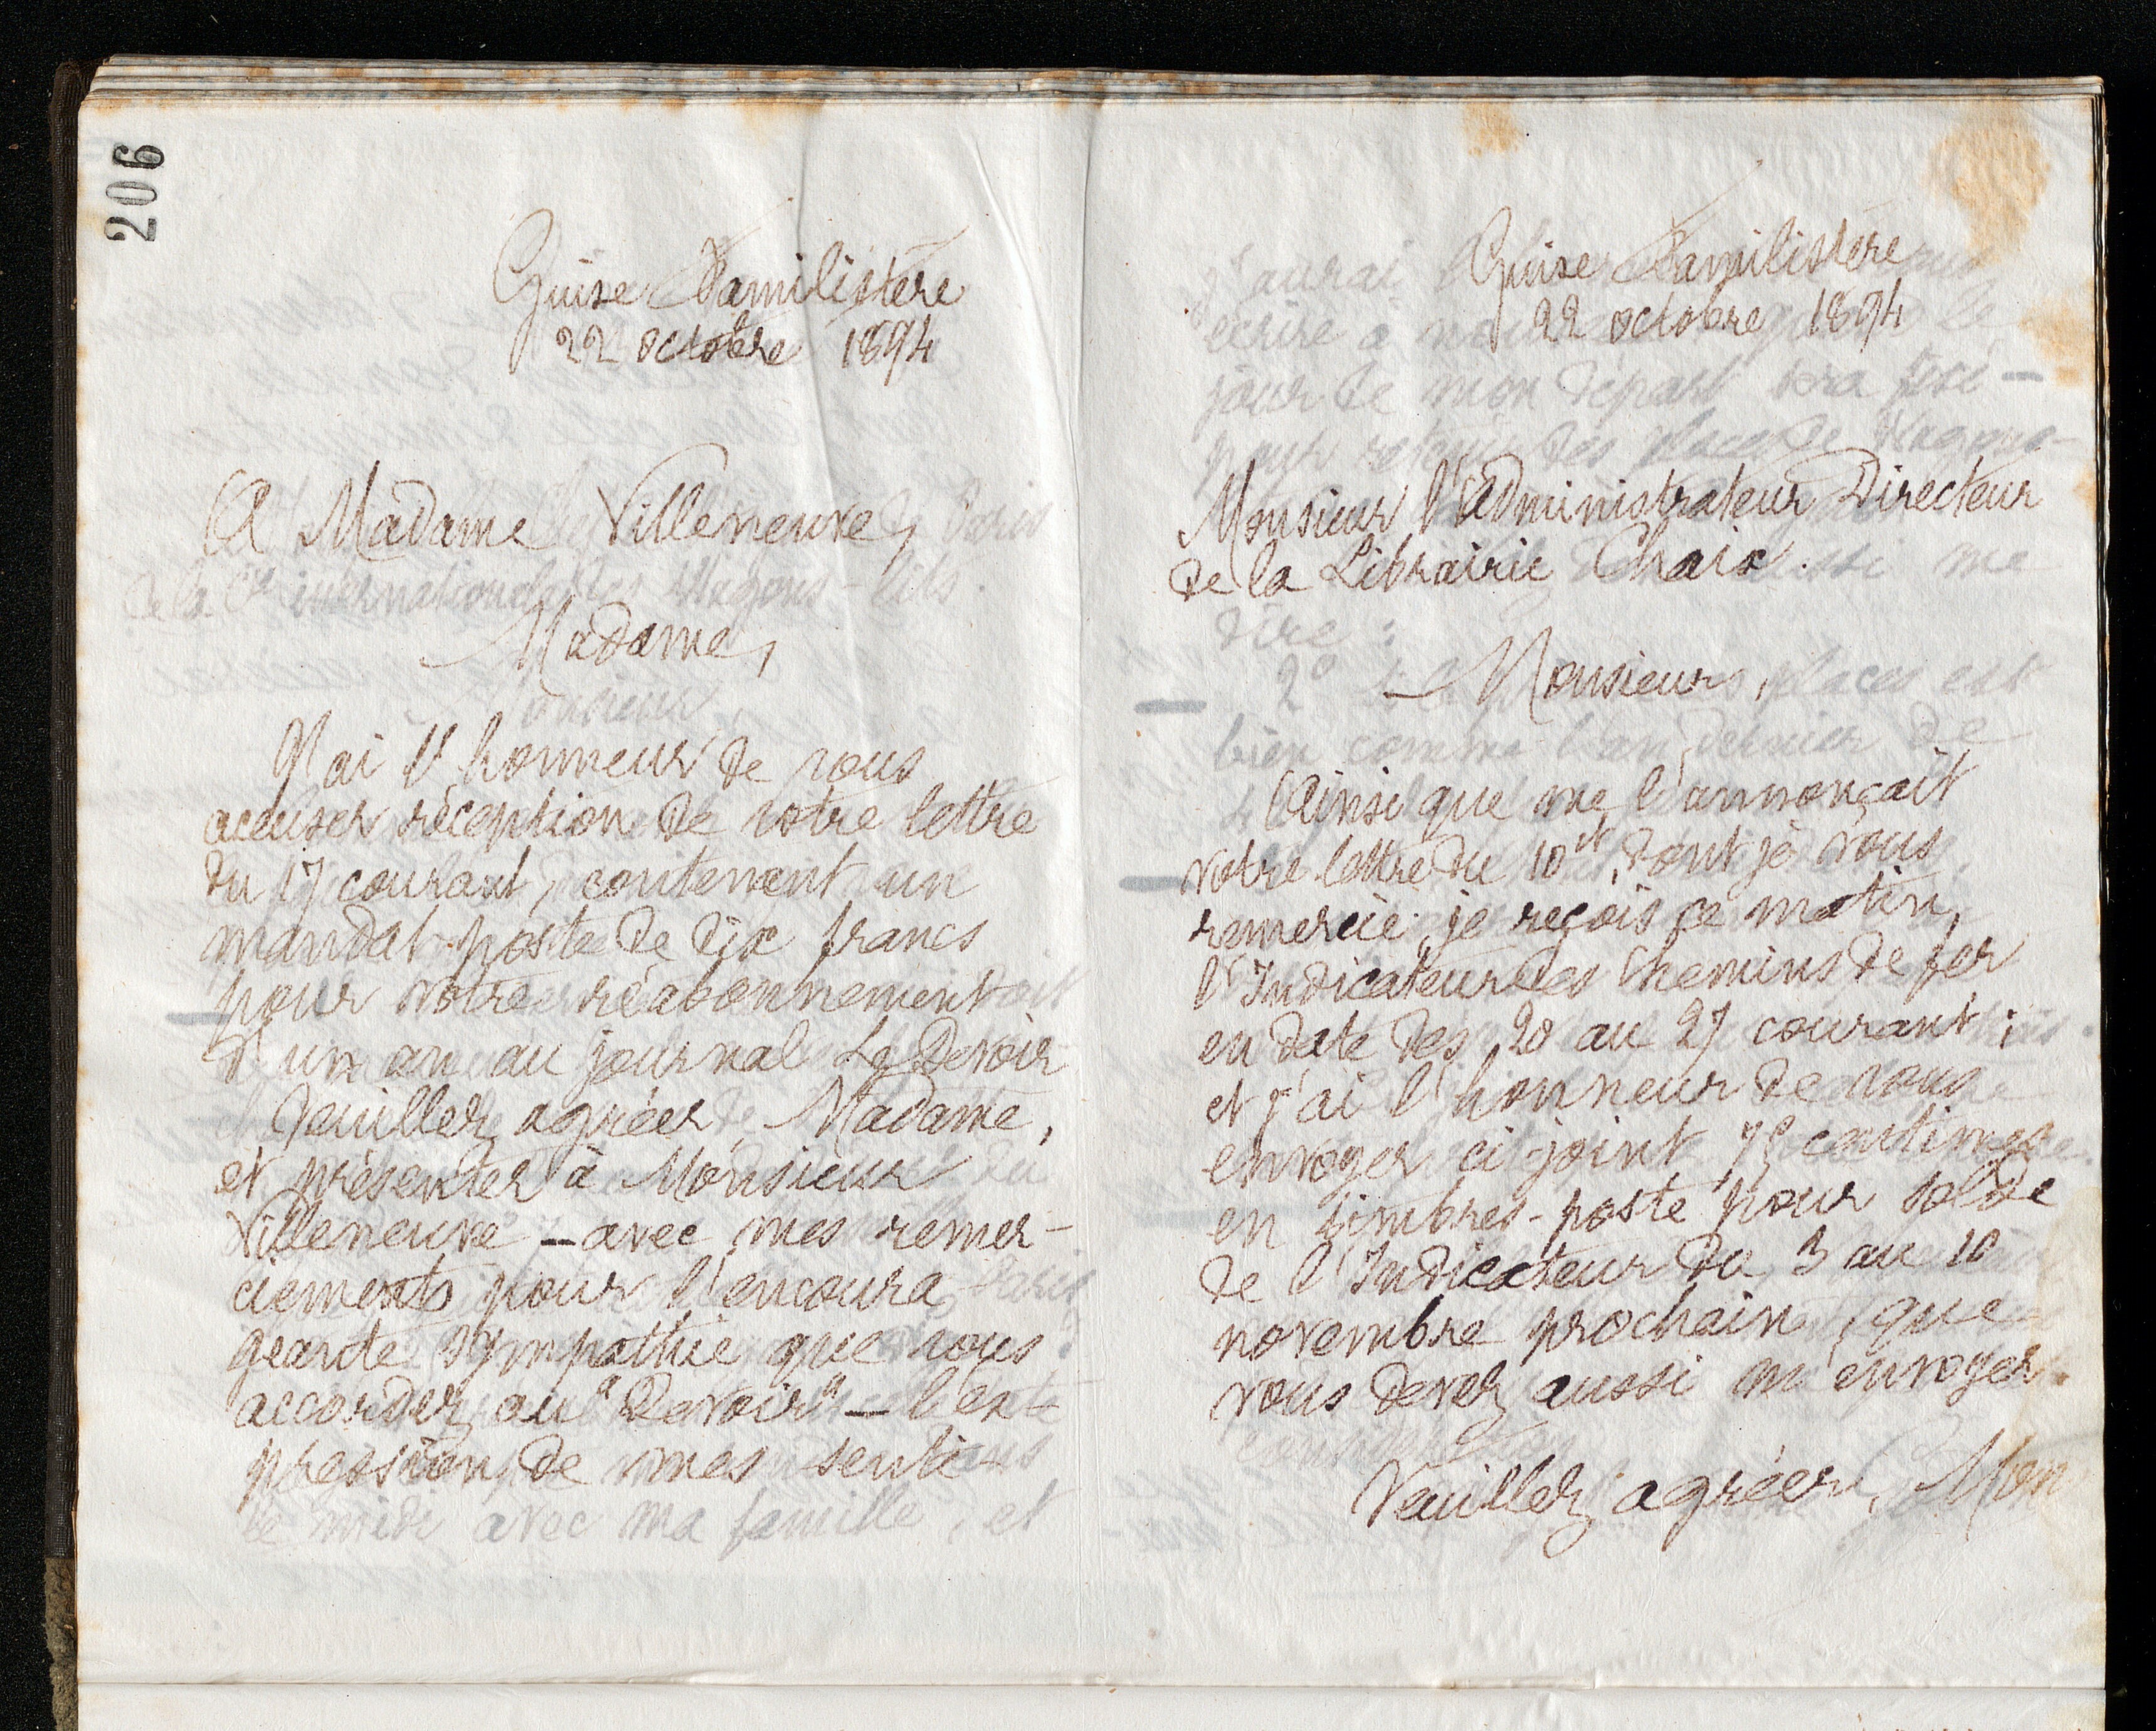 206
Guise Familistère
22 octobre 1894
A Madame Villeneuve,
Madame,
J'ai l'honneur de vous
accuser réception de votre lettre
du 17 courant, contenant un
mandat-poste de dix francs
pour votre réabonnement
d'un an au journal Le Devoir
Veuillez agréer, Madame,
et présenter à Monsieur
Villeneuve – avec mes remer-
ciements pour l'encoura-
geante sympathie que vous
accordez au "Devoir" – l'ex-
pression de mes senti-
Guise Familistère
22 octobre 1894
Monsieur l'administrateur Directeur
de la Librairie Chaix.
Monsieur,
Ainsi que me l'annonçait
votre lettre du 10 ct, dont je vous
remercie, je reçois ce matin,
l'Indicateur des Chemins de fer
en date des 20 au 27 courant ;
et j'ai l'honneur de vous
envoyer ci-joint 75 centimes
en timbres-poste pour solde
de l'Indicateur du 3 au 10
novembre prochain, que
vous devez aussi m'envoyer.
Veuillez agréer, Mon